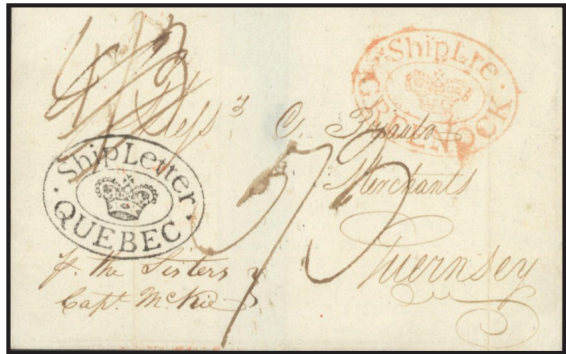 ShipLre
GREENOCK
Mess.rs C.
Merchants
Guernsey
Ship Letter
QUEBEC
p. the Sisters
Capt. McKie